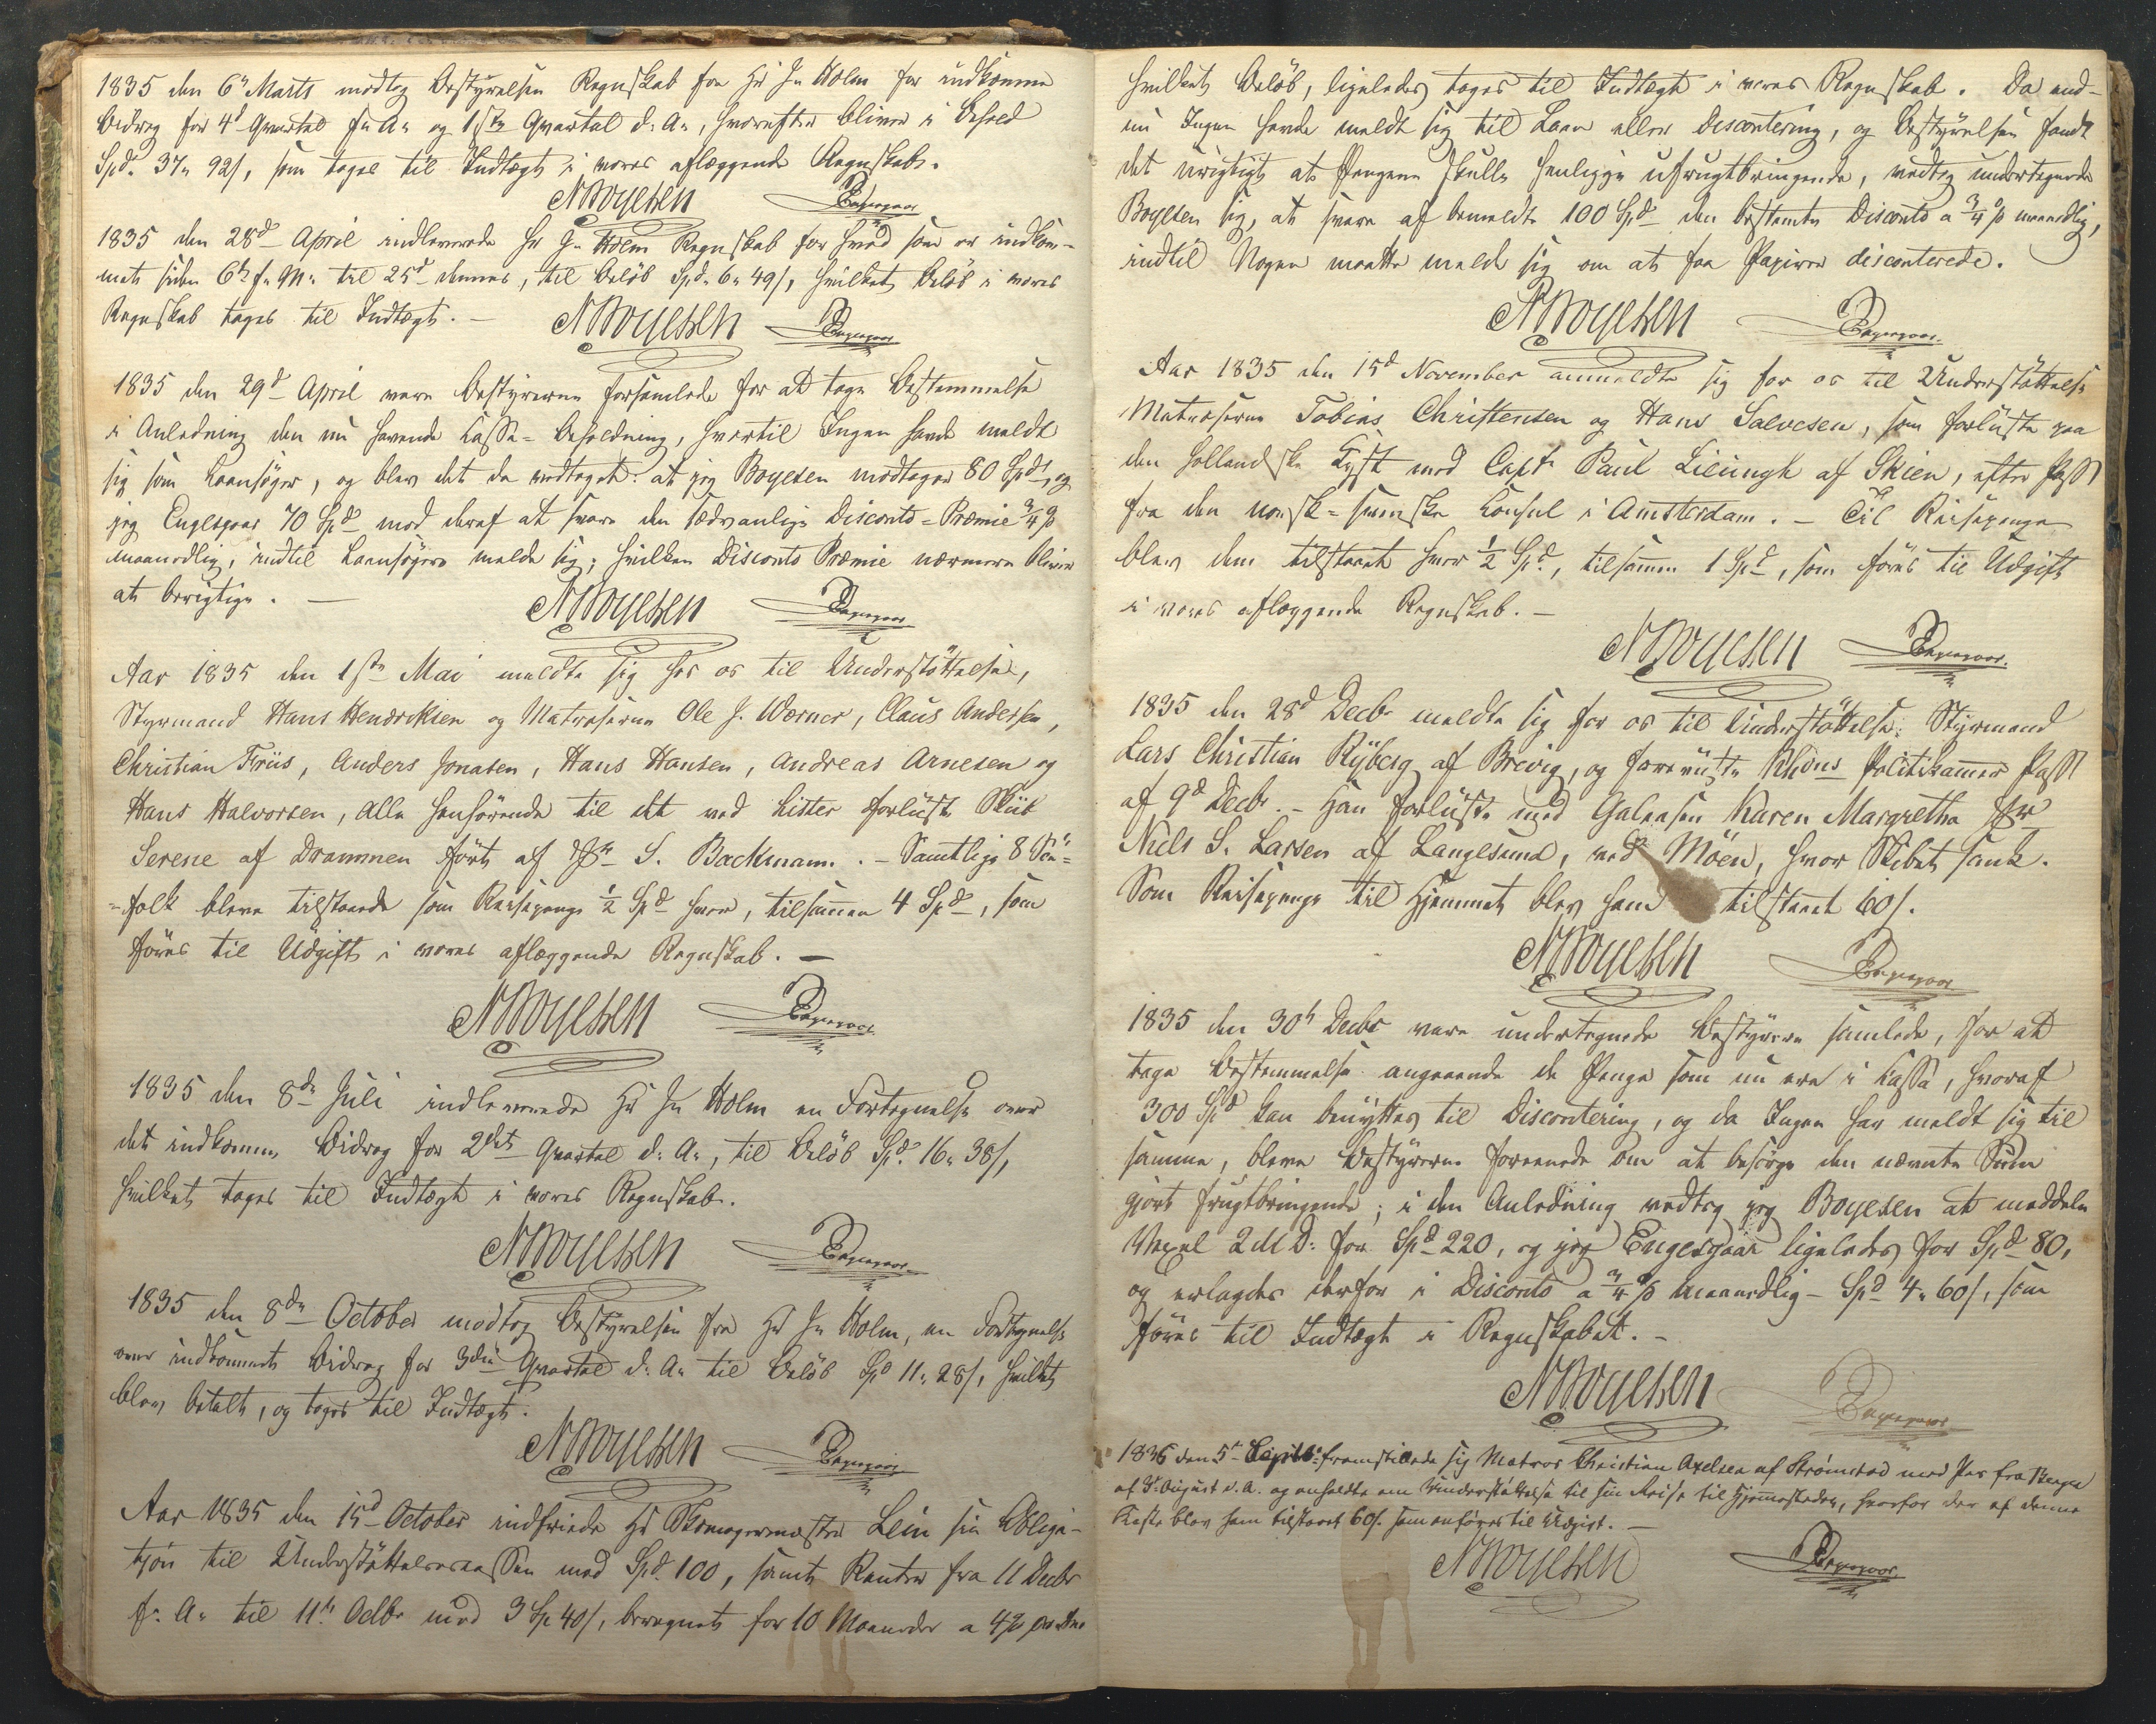 1835 den 6' Marts modtog Bestyrelsen Regnskab fra Hr Jn Holm for indkomne
Bidrag for 4d Qvartal f: A: og 1ste Qvartal d: A:, hvorefter bliver i Behold
Spd. 37" 92/, som tages til Indtægt i vores aflæggende Regnskab.
NBoyesen Engesgaar
1835 den 28d April indleverede Hr Jn Holm Regnskab for hvad som er indkom-
met siden 6te f: M: til 25d dennes, til Beløb Spd. 6" 49/, hvilket Beløb i vores
Regnskab tages til Indtægt. —
NBoyesen Engesgaar
1835 den 29d April vare Bestyrerne forsamlede for at tage Bestemmelse
i Anledning den nu havende Kassa-Beholdning, hvortil Ingen havde meldt
sig som Laansøger, og blev det da vedtaget: at jeg Boyesen modtager 80 Spd, og
jeg Engesgaar 70 Spd mod deraf at svare den sædvanlige Disconto-Præmie 3/4 %
maanedlig, indtil Laansøgere melde sig; hvilken Disconto Præmie nærmere bliver
at berigtige. —
NBoyesen Engesgaar
Aar 1835 den 1ste Mai meldte sig hos os til Understøttelse,
Styrmand Hans Hendriksen og Matroserne Ole J. Werner, Claus Andersen,
Christian Friis, Anders Jonasen, Hans Hansen, Andreas Arnesen og
Hans Halvorsen, alle henhørende til det ved Lister forliste Skib
Serene af Drammen ført af S. Backmann. — Samtlige 8 Søe-
-folk bleve tilstaaede som Reisepenge 1/2 Spd hver, tilsammen 4 Spd, som
føres til Udgift i vores aflæggende Regnskab. —
NBoyesen Engesgaar
1835 den 8de Juli indleverede Hr Jn Holm en Fortegnelse over
det indkomne Bidrag for 2det Qvartal d: A:, til Beløb Spd. 16" 38/,
hvilket tages til Indtægt i vores Regnskab.
NBoyesen Engesgaar
1835 den 8de October modtog Bestyrelsen fra Hr Jn Holm, en Fortegnelse
over indkomne Bidrag for 3die Qvartal d: A: til Beløb Spd 11" 28/, hvilket
blev betalt, og tages til Indtægt.
NBoyesen Engesgaar
Aar 1835 den 15d October indfriede Hr Skomagermester Lein sin Obliga-
tjon til Understøttelsescassen med Spd. 100, samt Renter fra 11 Decbr
f: A: til 11te Octbr med 3 Sp 40/, beregnet for 10 Maaneder a 4%
hvilket Beløb, ligeledes tages til Indtægt i vores Regnskab. Da end-
nu Ingen havde meldt sig til Laan eller Discontering, og Bestyrelsen fandt
det urigtigt at Pengene skulle henligge ufrugtbringende, vedtog undertegnede
Boyesen sig, at svare af bemeldte 100 Spd den bestemte Disconto a 3/4 % maanedlig,
indtil Nogen maatte melde sig om at faa Papirer disconterede.
NBoyesen Engesgaar
Aar 1835 den 15d November anmeldte sig for os til Understøttelse
Matroserne Tobias Christensen og Hans Salvesen, som forliste paa
den hollandske Kyst med Capt. Paul Lieungh af Skien, efter Pass
fra den norsk-svenske Konsul i Amsterdam. — Til Reisepenge
blev dem tilstaaet hver 1/2 Spd, tilsammen 1 Spd, som føres til Udgift
i vores aflæggende Regnskab. —
NBoyesen Engesgaar
1835 den 28d Decbr meldte sig for os til Understøttelse: Styrmand
Lars Christian Ryberg af Brevig, og foreviste Politikammer Pass
af 9d Decbr. — Han forliste med Galeasen Karen Margretha
Niels S. Larsen af Langesund, ved Möen, hvor Skibet sank.
Som Reisepenge til Hjemmet blev ham tilstaaet 60/.
NBoyesen Engesgaar
1835 den 30t Decbr vare undertegnede Bestyrere samlede, for at
tage Bestemmelse angaaende de Penge som nu ere i Kassa, hvoraf
300 Spd kan benyttes til Discontering, og da Ingen har meldt sig til
samme, bleve Bestyrerne foreenede om at besørge den nævnte Sum
gjort frugtbringende; i den Anledning vedtog jeg Boyesen at meddele
Vexel 2 M D: for Spd 220, og jeg Engesgaar ligeledes for Spd 80,
og erlagdes derfor i Disconto a 3/4 % maanedlig — Spd 4" 60/, som
føres til Indtægt i Regnskabet. —
NBoyesen Engesgaar
1836 den 5t Septbr: fremstillede sig Matros Christian Axelsen af Strømstad med Pas fra
af August d. A. og anholdte om Understøttelse til sin Reise til Hjemstedet, hvorfor der af denne
Kasse blev ham tilstaaet 60/. som anføres til Udgivt. —
NBoyesen Engesgaar